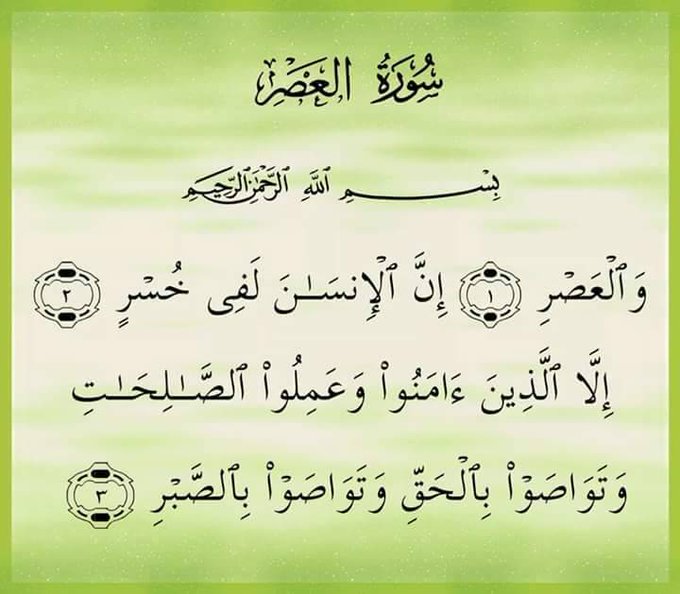 سُورَةُ العَصْرِ
بِسْمِ ٱللَّهِ ٱلرَّحْمَٰنِ ٱلرَّحِيمِ
وَٱلْعَصْرِ ١ إِنَّ ٱلْإِنسَـٰنَ لَفِى خُسْرٍ ٢
إِلَّا ٱلَّذِينَ ءَامَنُوا۟ وَعَمِلُوا۟ ٱلصَّـٰلِحَـٰتِ
وَتَوَاصَوْا۟ بِٱلْحَقِّ وَتَوَاصَوْا۟ بِٱلصَّبْرِ ٣